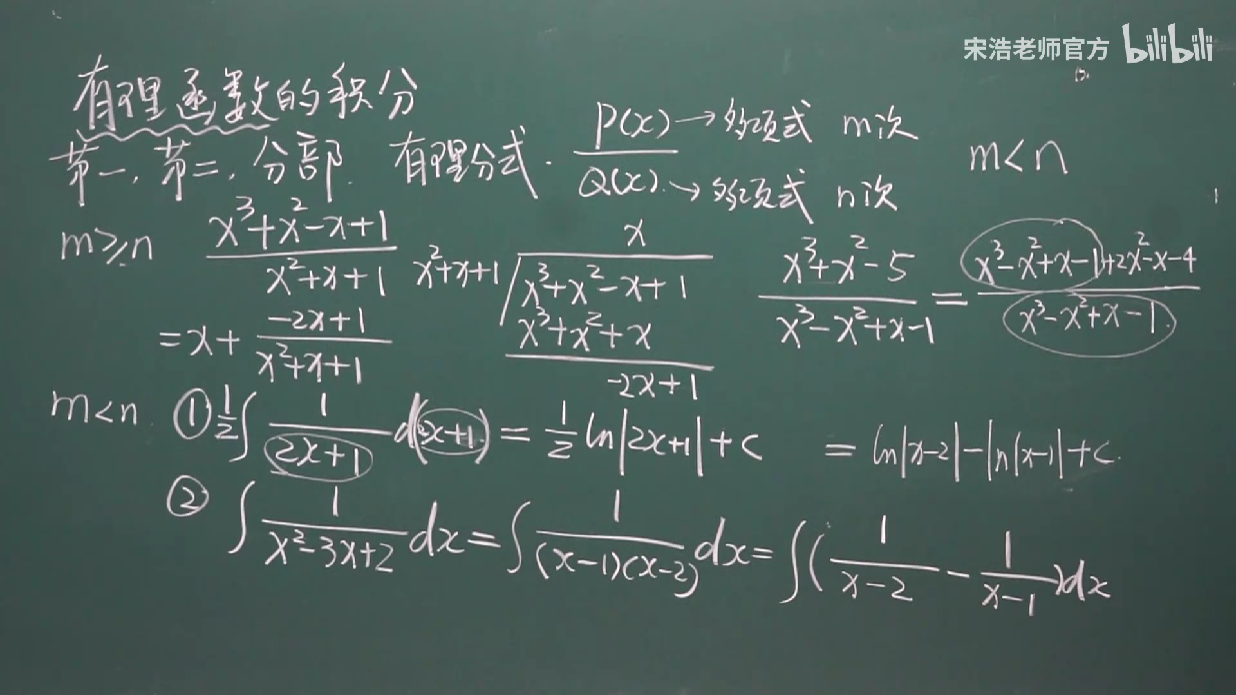 宋浩老师官方 bilibili
有理函数的积分
第一, 第二, 分部. 有理分式. P(x)→多项式 m次 / Q(x).→多项式 n次 m<n
m≥n (x³+x²-x+1)/(x²+x+1)
x
x²+x+1 √ x³+x²-x+1
x³+x²+x
-2x+1
=x+(-2x+1)/(x²+x+1)
(x³+x²-5)/(x³-x²+x-1)=(x³-x²+x-1)+2x²-x-4/(x³-x²+x-1)
m<n. ① 1/2∫1/(2x+1) d(2x+1)=1/2 ln|2x+1|+c
=ln|x-2|-ln|x-1|+c.
② ∫1/(x²-3x+2) dx=∫1/((x-1)(x-2)) dx=∫(1/(x-2)-1/(x-1))dx